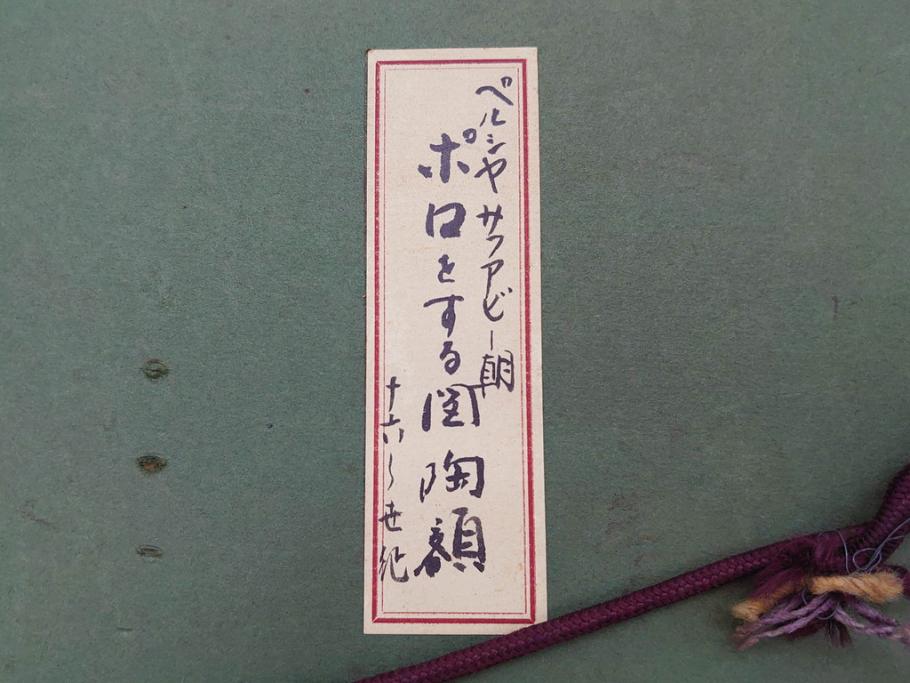 ペルシヤ サファビー朝
ポロをする図 陶額
十六〜世紀